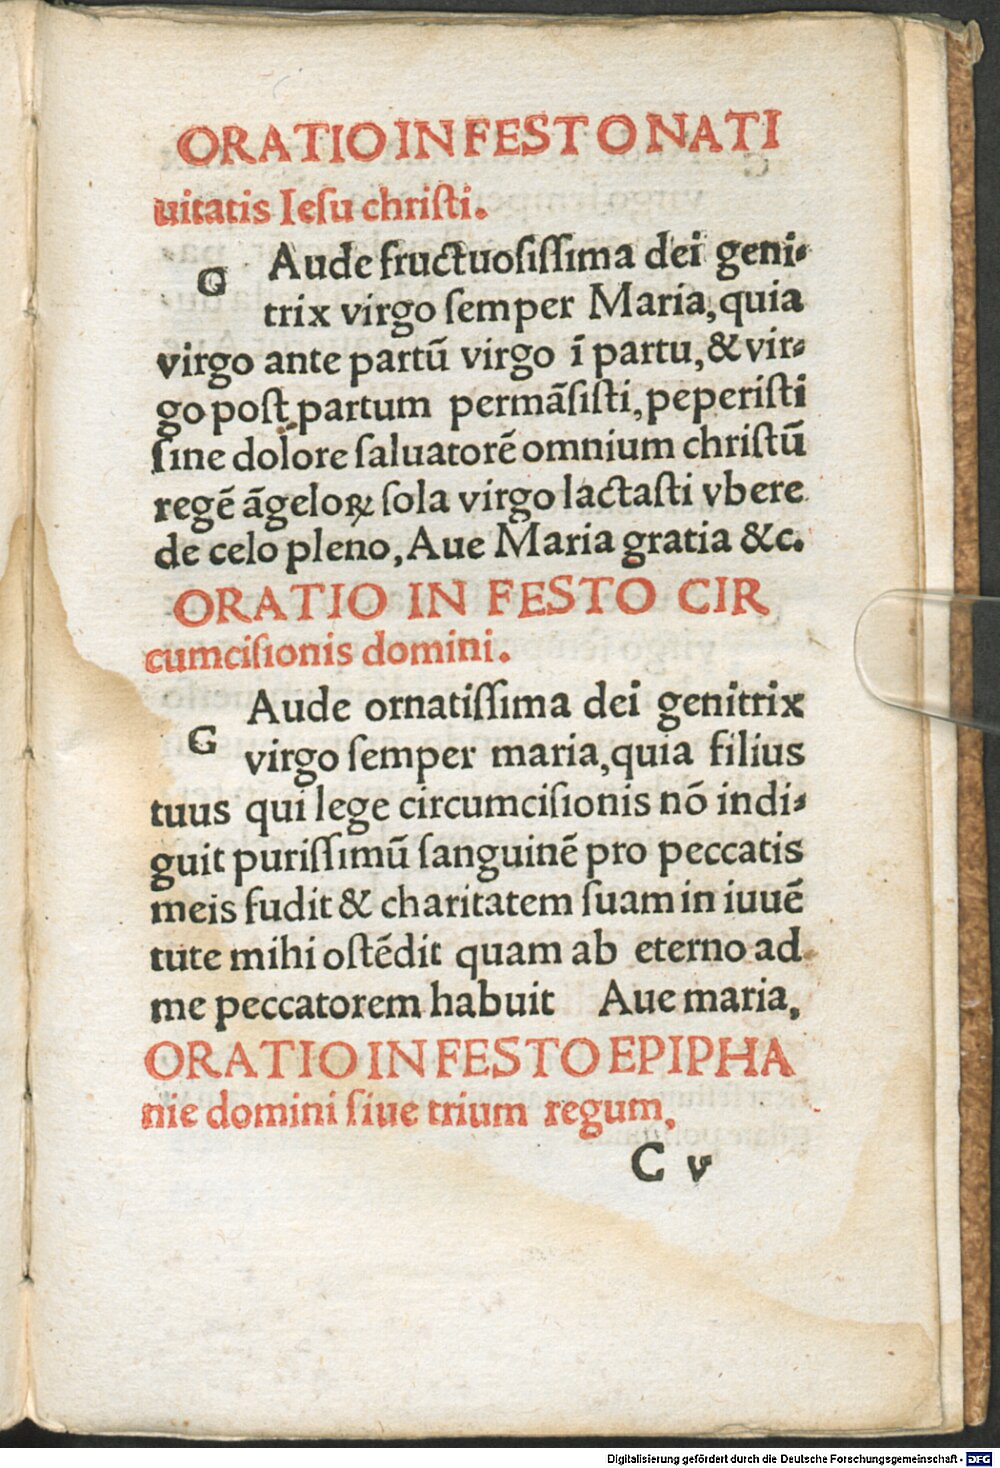 ORATIO IN FESTO NATI
uitatis Iesu christi.
G Aude fructuosissima dei geni-
trix virgo semper Maria, quia
virgo ante partū virgo ī partu, & vir-
go post partum permāsisti, peperisti
sine dolore saluatorē omnium christū
regē āgeloꝝ sola virgo lactasti vbere
de celo pleno, Aue Maria gratia &c.
ORATIO IN FESTO CIR
cumcisionis domini.
G Aude ornatissima dei genitrix
virgo semper maria, quia filius
tuus qui lege circumcisionis nō indi-
guit purissimū sanguinē pro peccatis
meis fudit & charitatem suam in iuuē
tute mihi ostēdit quam ab eterno ad
me peccatorem habuit Aue maria,
ORATIO IN FESTO EPIPHA
nie domini siue trium regum,
C v
Digitalisierung gefördert durch die Deutsche Forschungsgemeinschaft - DFG